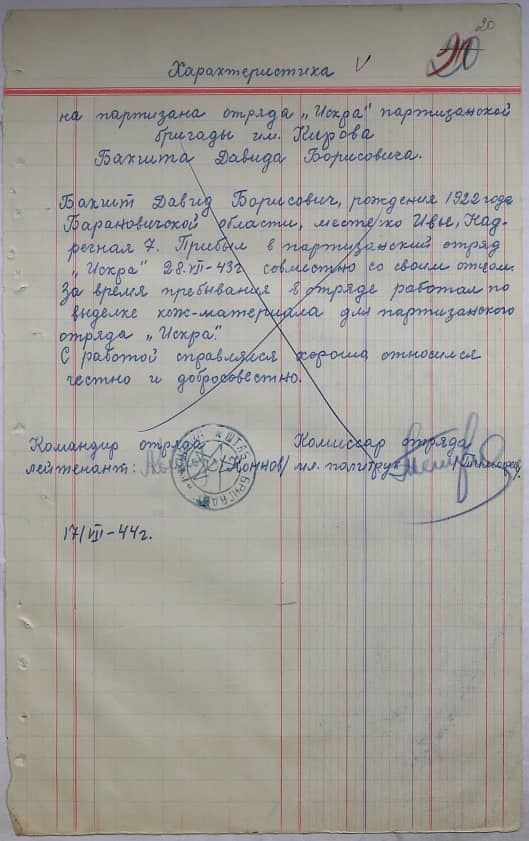 20
20
Характеристика V
на партизана отряда „Искра" партизанской
бригады им. Кирова
Бакшта Давида Борисовича.
Бакшт Давид Борисович, рождения 1922 года
Барановичской области, местечко Ивье, Над-
речная 7. Прибыл в партизанский отряд
„Искра" 28.VII-43г совместно со своим отцом.
За время пребывания в отряде работал по
выделке кож-материала для партизанского
отряда „Искра".
С работой справлялся хорошо относился
честно и добросовестно.
Командир отряда Комиссар отряда
лейтенант: мл. политрук
ШТАБ БРИГАДЫ
17/VIII-44г.